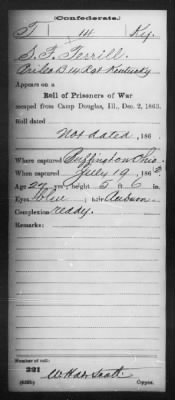 (Confederate.)
T 14 Ky.
S. F. Terrill.
14 Regt Kentucky
Appears on a
Roll of Prisoners of War
escaped from Camp Douglas, Ill., Dec. 2, 1863.
Roll dated
Not dated, 186 .
Where captured Buffington Ohio.
When captured July 19, 1863
Age 24 yrs.; height 5 ft. 6 in.
Eyes blue; hair Auburn
Complexion ruddy.
Remarks:
Number of roll:
221
(639b) Copyist.